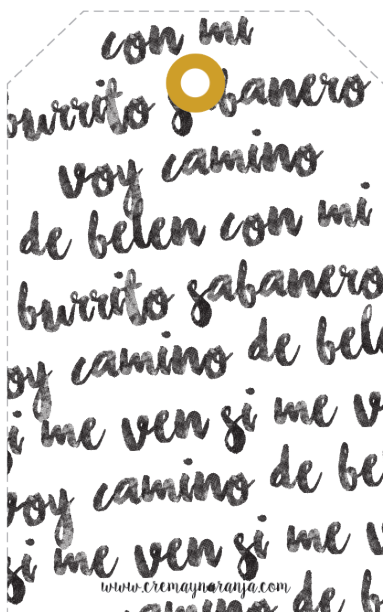 con mi
burrito sabanero
voy camino
de belen con mi
burrito sabanero
voy camino de bele
si me ven si me v
voy camino de be
si me ven si me v
www.cremaynaranja.com
camino de